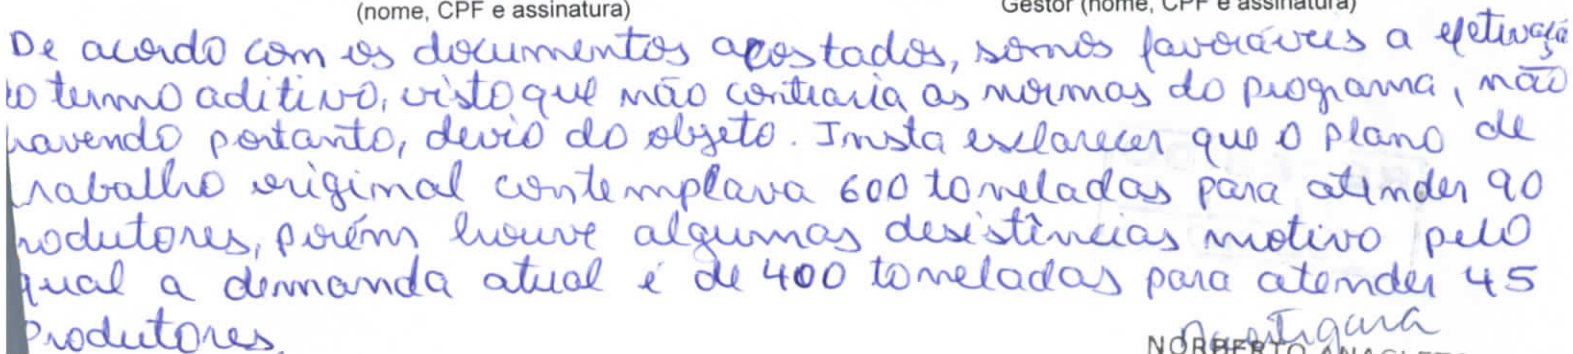 (nome, CPF e assinatura) Gestor (nome, CPF e assinatura)
De acordo com os documentos acostados, somos favoráveis a efetivaçã
o termo aditivo, visto que não contraria as normas do programa, não
havendo portanto, devio do objeto. Insta esclarecer que o plano de
trabalho original contemplava 600 toneladas para atender 90
rodutores, porém houve algumas desistências motivo pelo
qual a demanda atual é de 400 toneladas para atender 45
Produtores.
NORBERTO